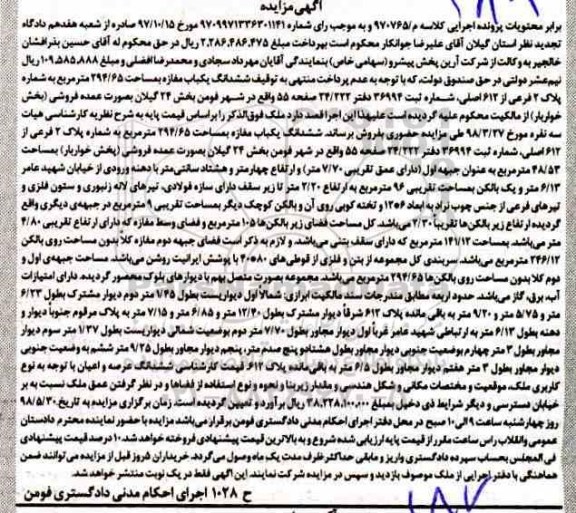 آگهی مزایده
برابر محتویات پرونده اجرایی کلاسه م/۹۷۰۷۶۵ و به موجب رای شماره ۹۷۰۹۹۷۱۳۳۶۳۰۱۱۴۱ مورخ ۹۷/۱۰/۱۵ صادره از شعبه هفدهم دادگاه
تجدید نظر استان گیلان آقای علیرضا جوانکار محکوم است بپرداخت مبلغ ۲,۲۸۶,۴۸۶,۴۷۵ ریال در حق محکوم له آقای حسین بذرافشان
خالجیر به وکالت از شرکت آرین پخش پیشرو (سهامی خاص) بنمایندگی آقایان مهرداد سجادی و محمدرضا افضلی و مبلغ ۱۰۹,۵۸۵,۸۸۸ ریال
نیم عشر دولتی در حق صندوق دولت، که با توجه به عدم پرداخت منتهی به توقیف ششدانگ یکباب مغازه بمساحت ۲۹۴/۶۵ مترمربع به شماره
پلاک ۲ فرعی از ۶۱۲ اصلی، شماره ثبت ۳۶۹۹۴ دفتر ۲۴/۲۲۲ صفحه ۵۵ واقع در شهر فومن بخش ۲۴ گیلان بصورت عمده فروشی (پخش
خواربار) از مالکیت محکوم علیه گردیده است علیهذا این اجرا قصد دارد ملک فوق الذکر را براساس قیمت پایه به شرح نظریه کارشناسی هیات
سه نفره مورخ ۹۸/۳/۲۷ طی مزایده حضوری بفروش برساند. ششدانگ یکباب مغازه بمساحت ۲۹۴/۶۵ مترمربع به شماره پلاک ۲ فرعی از
۶۱۲ اصلی، شماره ثبت ۳۶۹۹۴ دفتر ۲۴/۲۲۲ صفحه ۵۵ واقع در شهر فومن بخش ۲۴ گیلان بصورت عمده فروشی (پخش خواربار) بمساحت
۴۸/۵۳ مترمربع به عنوان جبهه اول (دارای عمق تقریبی ۷/۷۰ متر) و ارتفاع چهارمتر و هشتاد سانتی متر با دهنه ورودی از خیابان شهید عامر
۶/۱۳ متر و یک بالکن بمساحت تقریبی ۹۶ مترمربع به ارتفاع ۲/۲۰ تا زیر سقف دارای سازه فولادی، تیرهای لانه زنبوری و ستون فلزی و
تیرهای فرعی از جنس چوب نراد به ابعاد ۶*۱۲ و تخته کوبی روی آن و بالکن کوچک دیگر بمساحت تقریبی ۹ مترمربع در جبهه ی دیگری واقع
گردیده ارتفاع زیر بالکن ها تقریباً ۲/۳۰ می باشد. کل مساحت فضای زیر بالکن ها ۱۰۵ مترمربع و فضای وسط مغازه که دارای ارتفاع تقریبی ۴/۸۰
متر می باشد. بمساحت ۱۴۱/۱۲ مترمربع که دارای سقف بتنی می باشد. و لازم به ذکر است فضای جبهه دوم مغازه کلاً بدون مساحت روی بالکن
۲۴۶/۱۲ مترمربع می باشد. سربندی کل مجموعه از بتن و فلزی از قوطی های ۸۰*۴۰ با پوشش ایرانیت روشن می باشد. مساحت جبهه ی اول و
دوم کلا بدون مساحت روی بالکن ها ۲۹۴/۶۵ مترمربع می باشد. مجموعه بصورت متصل بهم با دیوارهای بلوک محصور گردیده. دارای امتیازات
آب، برق، گاز می باشد. حدود اربعه مطابق مندرجات سند مالکیت ابرازی: شمالاً اول دیواریست بطول ۱/۴۵ متر دوم دیوار مشترک بطول ۶/۲۳
متر و ۵/۷۵ متر و ۹/۲۰ متر به باقی مانده پلاک ۶۱۲ شرقاً دیوار مشترک بطول ۱۲/۴۰ متر و ۶/۸۵ متر و ۷/۱۵ متر به پلاک مرقوم جنوباً دیوار و
دهنه بطول ۶/۱۳ متر به ارتباطی شهید عامر غرباً اول دیوار مجاور بطول ۷/۷۰ متر دوم بوضعیت شمالی دیواریست بطول ۱/۳۷ متر سوم دیوار
مجاور بطول ۳ متر چهارم بوضعیت جنوبی دیوار مجاور بطول هشتادو پنج صدم متر، پنجم دیوار مجاور بطول ۹/۲۵ متر ششم به وضعیت جنوبی
دیوار مجاور بطول ۳ متر هفتم دیوار مجاور بطول ۶/۵ متر به باقی مانده پلاک ۶۱۲. قیمت کارشناسی ششدانگ عرصه و اعیان با توجه به نوع
کاربری ملک، موقعیت و مختصات مکانی و شکل هندسی و مقدار زیربنا و نحوه و نوع استفاده از فضاها و در نظر گرفتن عمق ملک نسبت به بر
خیابان دسترسی و دیگر شرایط ذی دخیل بمبلغ ۳۸,۳۲۸,۱۰۰,۰۰۰ ریال برآورد و تعیین گردیده است. زمان برگزاری مزایده به تاریخ ۹۸/۵/۳۰
چهارشنبه بوقت ساعت ۹ الی ۱۰ صبح در محل دفتر اجرای احکام مدنی دادگستری فومن برقرار می باشد مزایده با حضور نماینده محترم دادستان
عمومی و انقلاب راس ساعت مقرر از قیمت پایه ارزیابی شده شروع و به بالاترین قیمت پیشنهادی فروخته خواهد شد. ۱۰ درصد قیمت پیشنهادی
فی المجلس بحساب سپرده دادگستری واریز و مابقی حداکثر ظرف مدت یک ماه وصول می گردد. خریداران ۵ روز قبل از مزایده می توانند ضمن
هماهنگی با دفتر اجرایی از ملک موصوف بازدید و سپس در مزایده شرکت نمایند. این آگهی فقط در یک نوبت منتشر خواهد شد.
ح ۱۰۲۸ اجرای احکام مدنی دادگستری فومن